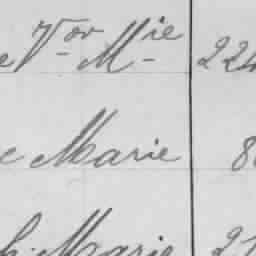 e Vor Mie 224
e Marie 8
h. Marie 21